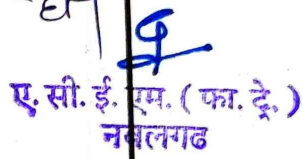 ए. सी. ई. एम. ( फा. ट्रे. )
नवलगढ